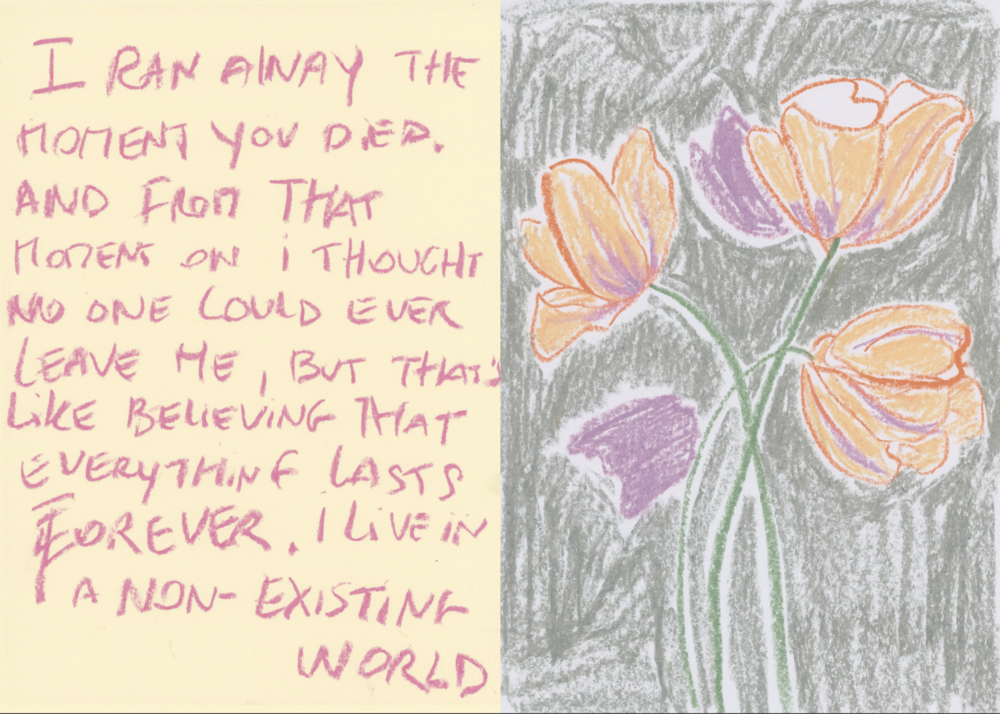 I RAN AWAY THE
MOMENT YOU DIED.
AND FROM THAT
MOMENT ON i THOUGHT
NO ONE COULD EVER
LEAVE ME, BUT THAT'S
LiKE BELIEVING THAT
EVERYTHING LASTS
FOREVER. I LiVE iN
A NON-EXISTING
WORLD